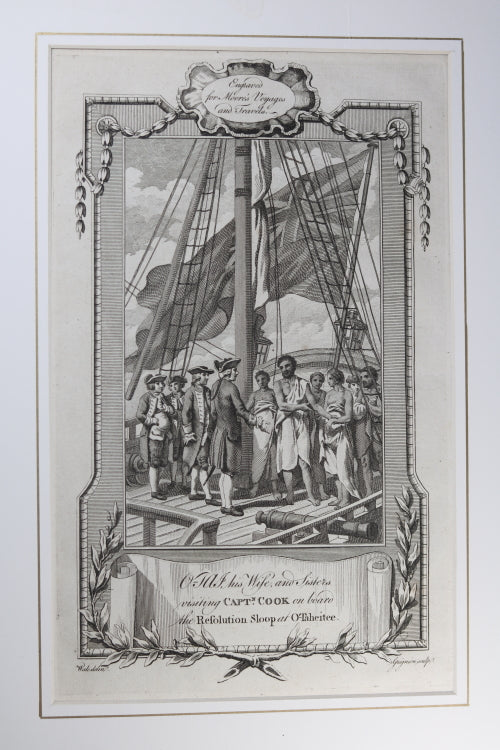 Engraved
for Moore's Voyages
and Travels.
O'TAI, his Wife, and Sisters
visiting CAPTN. COOK on board
the Resolution Sloop at O'Taheitee.
Wale delin.
Grignion sculp.